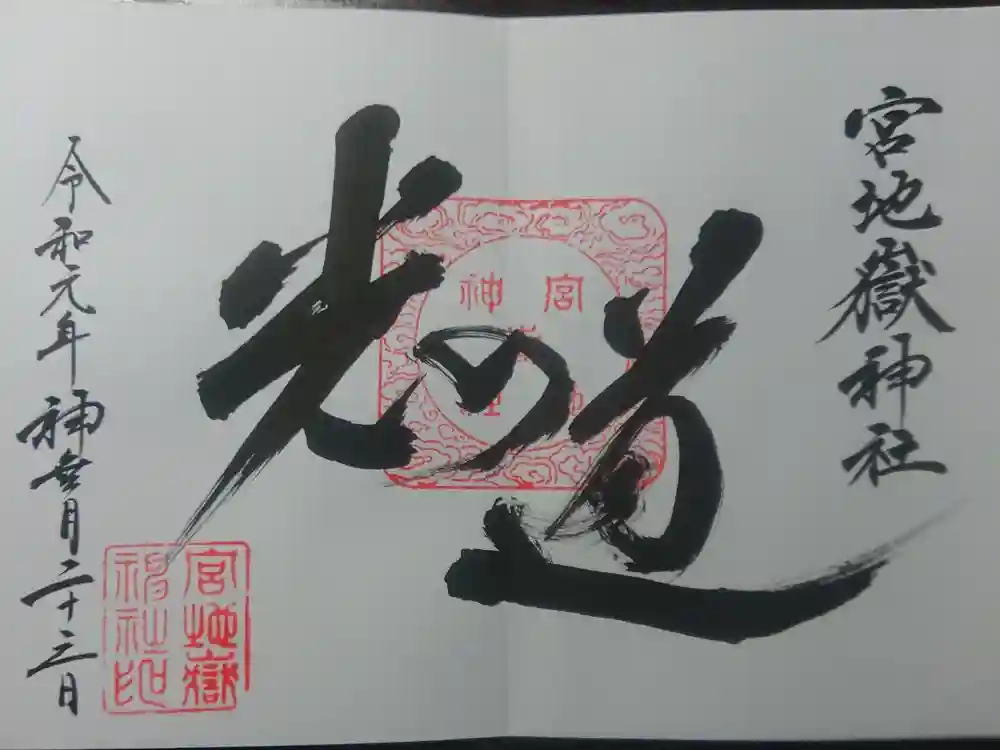 宮地嶽神社
光の道
令和元年神無月二十三日
宮地嶽
神社印
宮
神社